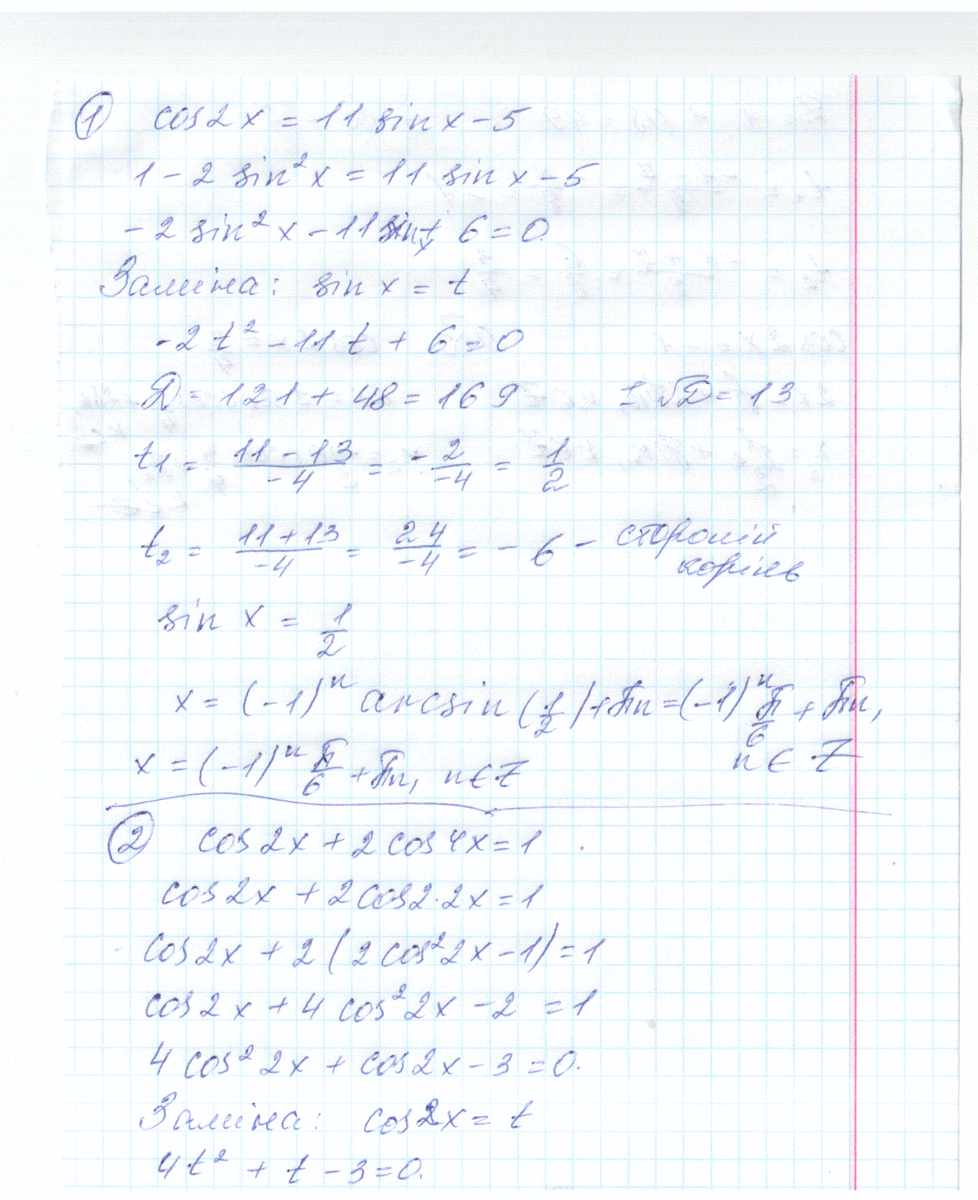 ① cos2x = 11 sinx - 5
1 - 2 sin²x = 11 sin x - 5
- 2 sin²x - 11 sin x + 6 = 0
Заміна: sin x = t
-2t² - 11t + 6 = 0
D = 121 + 48 = 169 ± √D = 13
t1 = (11 - 13)/-4 = - 2/-4 = 1/2
t2 = (11 + 13)/-4 = 24/-4 = - 6 - сторонній
корінь
sin x = 1/2
x = (-1)ⁿ arcsin (1/2) + πn = (-1)ⁿ π/6 + πn,
n ∈ Z
x = (-1)ⁿ π/6 + πn, n ∈ Z
② cos 2x + 2 cos 4x = 1
cos 2x + 2 cos 2·2x = 1
cos 2x + 2 (2 cos²2x - 1) = 1
cos 2x + 4 cos²2x - 2 = 1
4 cos² 2x + cos 2x - 3 = 0.
Заміна: cos 2x = t
4t² + t - 3 = 0.